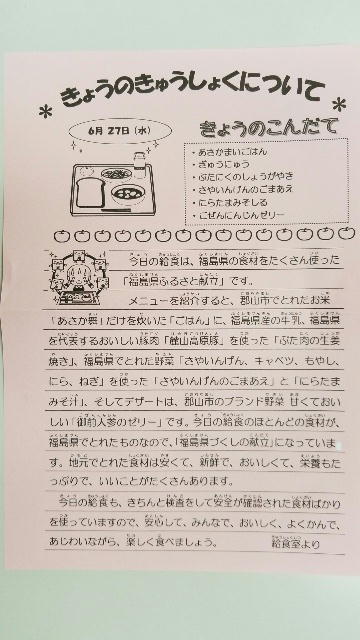 きょうのきゅうしょくについて
6月 27日(水)
きょうのこんだて
・あさかまいごはん
・ぎゅうにゅう
・ぶたにくのしょうがやき
・さやいんげんのごまあえ
・にらたまみそしる
・ごぜんにんじんゼリー
今日の給食は、福島県の食材をたくさん使った
「福島県ふるさと献立」です。
メニューを紹介すると、郡山市でとれたお米
「あさか舞」だけを炊いた「ごはん」に、福島県産の牛乳、福島県
を代表するおいしい豚肉「麓山高原豚」を使った「ぶた肉の生姜
焼き」、福島県でとれた野菜「さやいんげん、キャベツ、もやし、
にら、ねぎ」を使った「さやいんげんのごまあえ」と「にらたま
みそ汁」、そしてデザートは、郡山市のブランド野菜 甘くておい
しい「御前人参のゼリー」です。今日の給食のほとんどの食材が、
福島県でとれたものなので、「福島県づくしの献立」になっていま
す。地元でとれた食材は安くて、新鮮で、おいしくて、栄養もた
っぷりで、いいことがたくさんあります。
今日の給食も、きちんと検査をして安全が確認された食材ばかり
を使っていますので、安心して、みんなで、おいしく、よくかんで、
あじわいながら、楽しく食べましょう。 給食室より